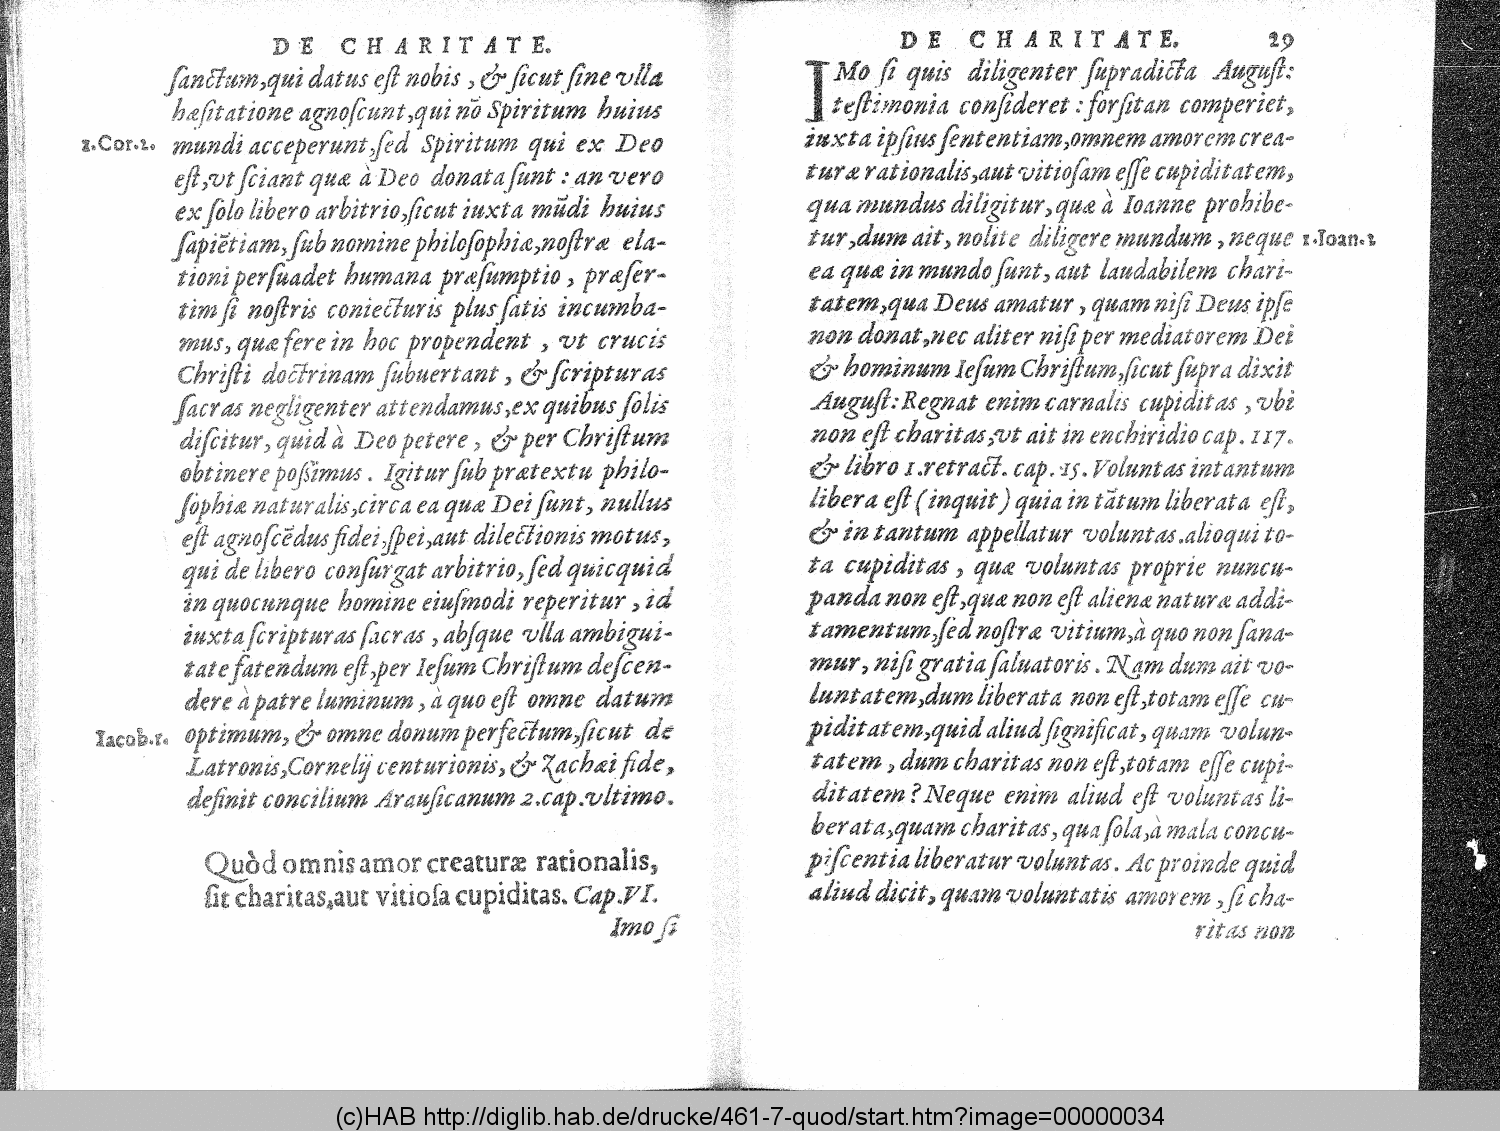 DE CHARITATE.
ſanctum,qui datus eſt nobis , & ſicut ſine vlla
hæſitatione agnoſcunt,qui nō Spiritum huius
1.Cor.2. mundi acceperunt,ſed Spiritum qui ex Deo
eſt,vt ſciant quæ à Deo donata ſunt : an vero
ex ſolo libero arbitrio,ſicut iuxta mūdi huius
ſapiētiam, ſub nomine philoſophiæ,noſtræ ela-
tioni perſuadet humana præſumptio , præſer-
tim ſi noſtris coniecturis plus ſatis incumba-
mus, quæ fere in hoc propendent , vt crucis
Chriſti doctrinam ſubuertant , & ſcripturas
ſacras negligenter attendamus,ex quibus ſolis
diſcitur, quid à Deo petere , & per Chriſtum
obtinere poſſimus . Igitur ſub prætextu philo-
ſophiæ naturalis,circa ea quæ Dei ſunt, nullus
eſt agnoſcēdus fidei,ſpei,aut dilectionis motus,
qui de libero conſurgat arbitrio, ſed quicquid
in quocunque homine eiuſmodi reperitur , id
iuxta ſcripturas ſacras , abſque vlla ambigui-
tate fatendum eſt,per Ieſum Chriſtum deſcen-
dere à patre luminum , à quo eſt omne datum
Iacob.1. optimum, & omne donum perfectum,ſicut de
Latronis,Cornelij centurionis, & Zachæi fide,
definit concilium Arauſicanum 2.cap.vltimo.
Quòd omnis amor creaturæ rationalis,
ſit charitas,aut vitioſa cupiditas. Cap.VI.
Imo ſi
DE CHARITATE. 29
IMo ſi quis diligenter ſupradicta Auguſt:
teſtimonia conſideret : forſitan comperiet,
iuxta ipſius ſententiam,omnem amorem crea-
turæ rationalis,aut vitioſam eſſe cupiditatem,
qua mundus diligitur, quæ à Ioanne prohibe-
tur,dum ait, nolite diligere mundum , neque 1.Ioan.2
ea quæ in mundo ſunt, aut laudabilem chari-
tatem,qua Deus amatur , quam niſi Deus ipſe
non donat,nec aliter niſi per mediatorem Dei
& hominum Ieſum Chriſtum,ſicut ſupra dixit
Auguſt: Regnat enim carnalis cupiditas , vbi
non eſt charitas,vt ait in enchiridio cap. 117.
& libro 1.retract. cap. 15. Voluntas intantum
libera eſt (inquit) quia in tātum liberata eſt,
& in tantum appellatur voluntas.alioqui to-
ta cupiditas , quæ voluntas proprie nuncu-
panda non eſt,quæ non eſt alienæ naturæ addi-
tamentum,ſed noſtræ vitium,à quo non ſana-
mur, niſi gratia ſaluatoris . Nam dum ait vo-
luntatem,dum liberata non eſt,totam eſſe cu-
piditatem,quid aliud ſignificat, quam volun-
tatem , dum charitas non eſt,totam eſſe cupi-
ditatem? Neque enim aliud eſt voluntas li-
berata,quam charitas, qua ſola,à mala concu-
piſcentia liberatur voluntas. Ac proinde quid
aliud dicit, quam voluntatis amorem , ſi cha-
ritas non
(c)HAB http://diglib.hab.de/drucke/461-7-quod/start.htm?image=00000034